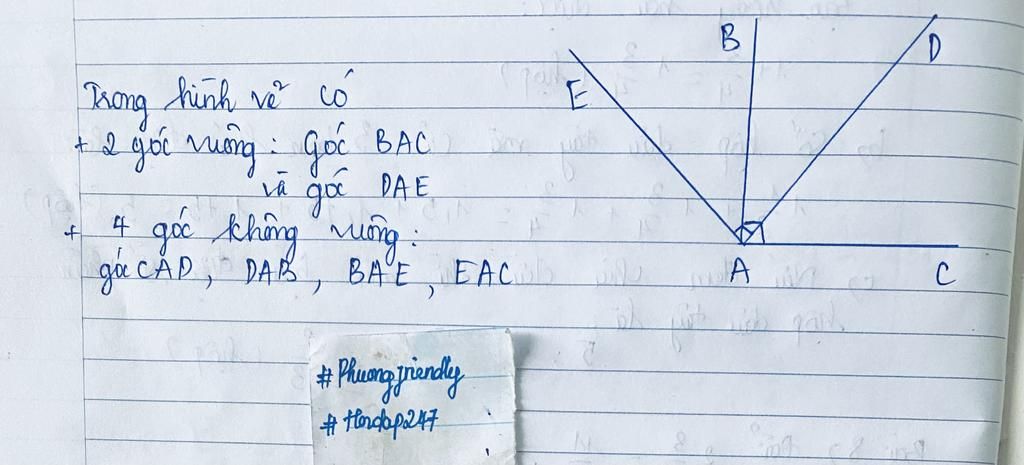 Trong hình vẽ có
+ 2 góc vuông: Góc BAC
và góc DAE
+ 4 góc không vuông:
góc CAD, DAB, BAE, EAC
E
B
D
A
C
#Phuongfriendly
#Hoidap247